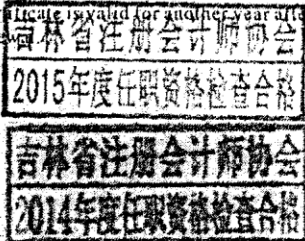 ificate is valid for another year aft
吉林省注册会计师协会
2015年度任职资格检查合格
吉林省注册会计师协会
2014年度任职资格检查合格